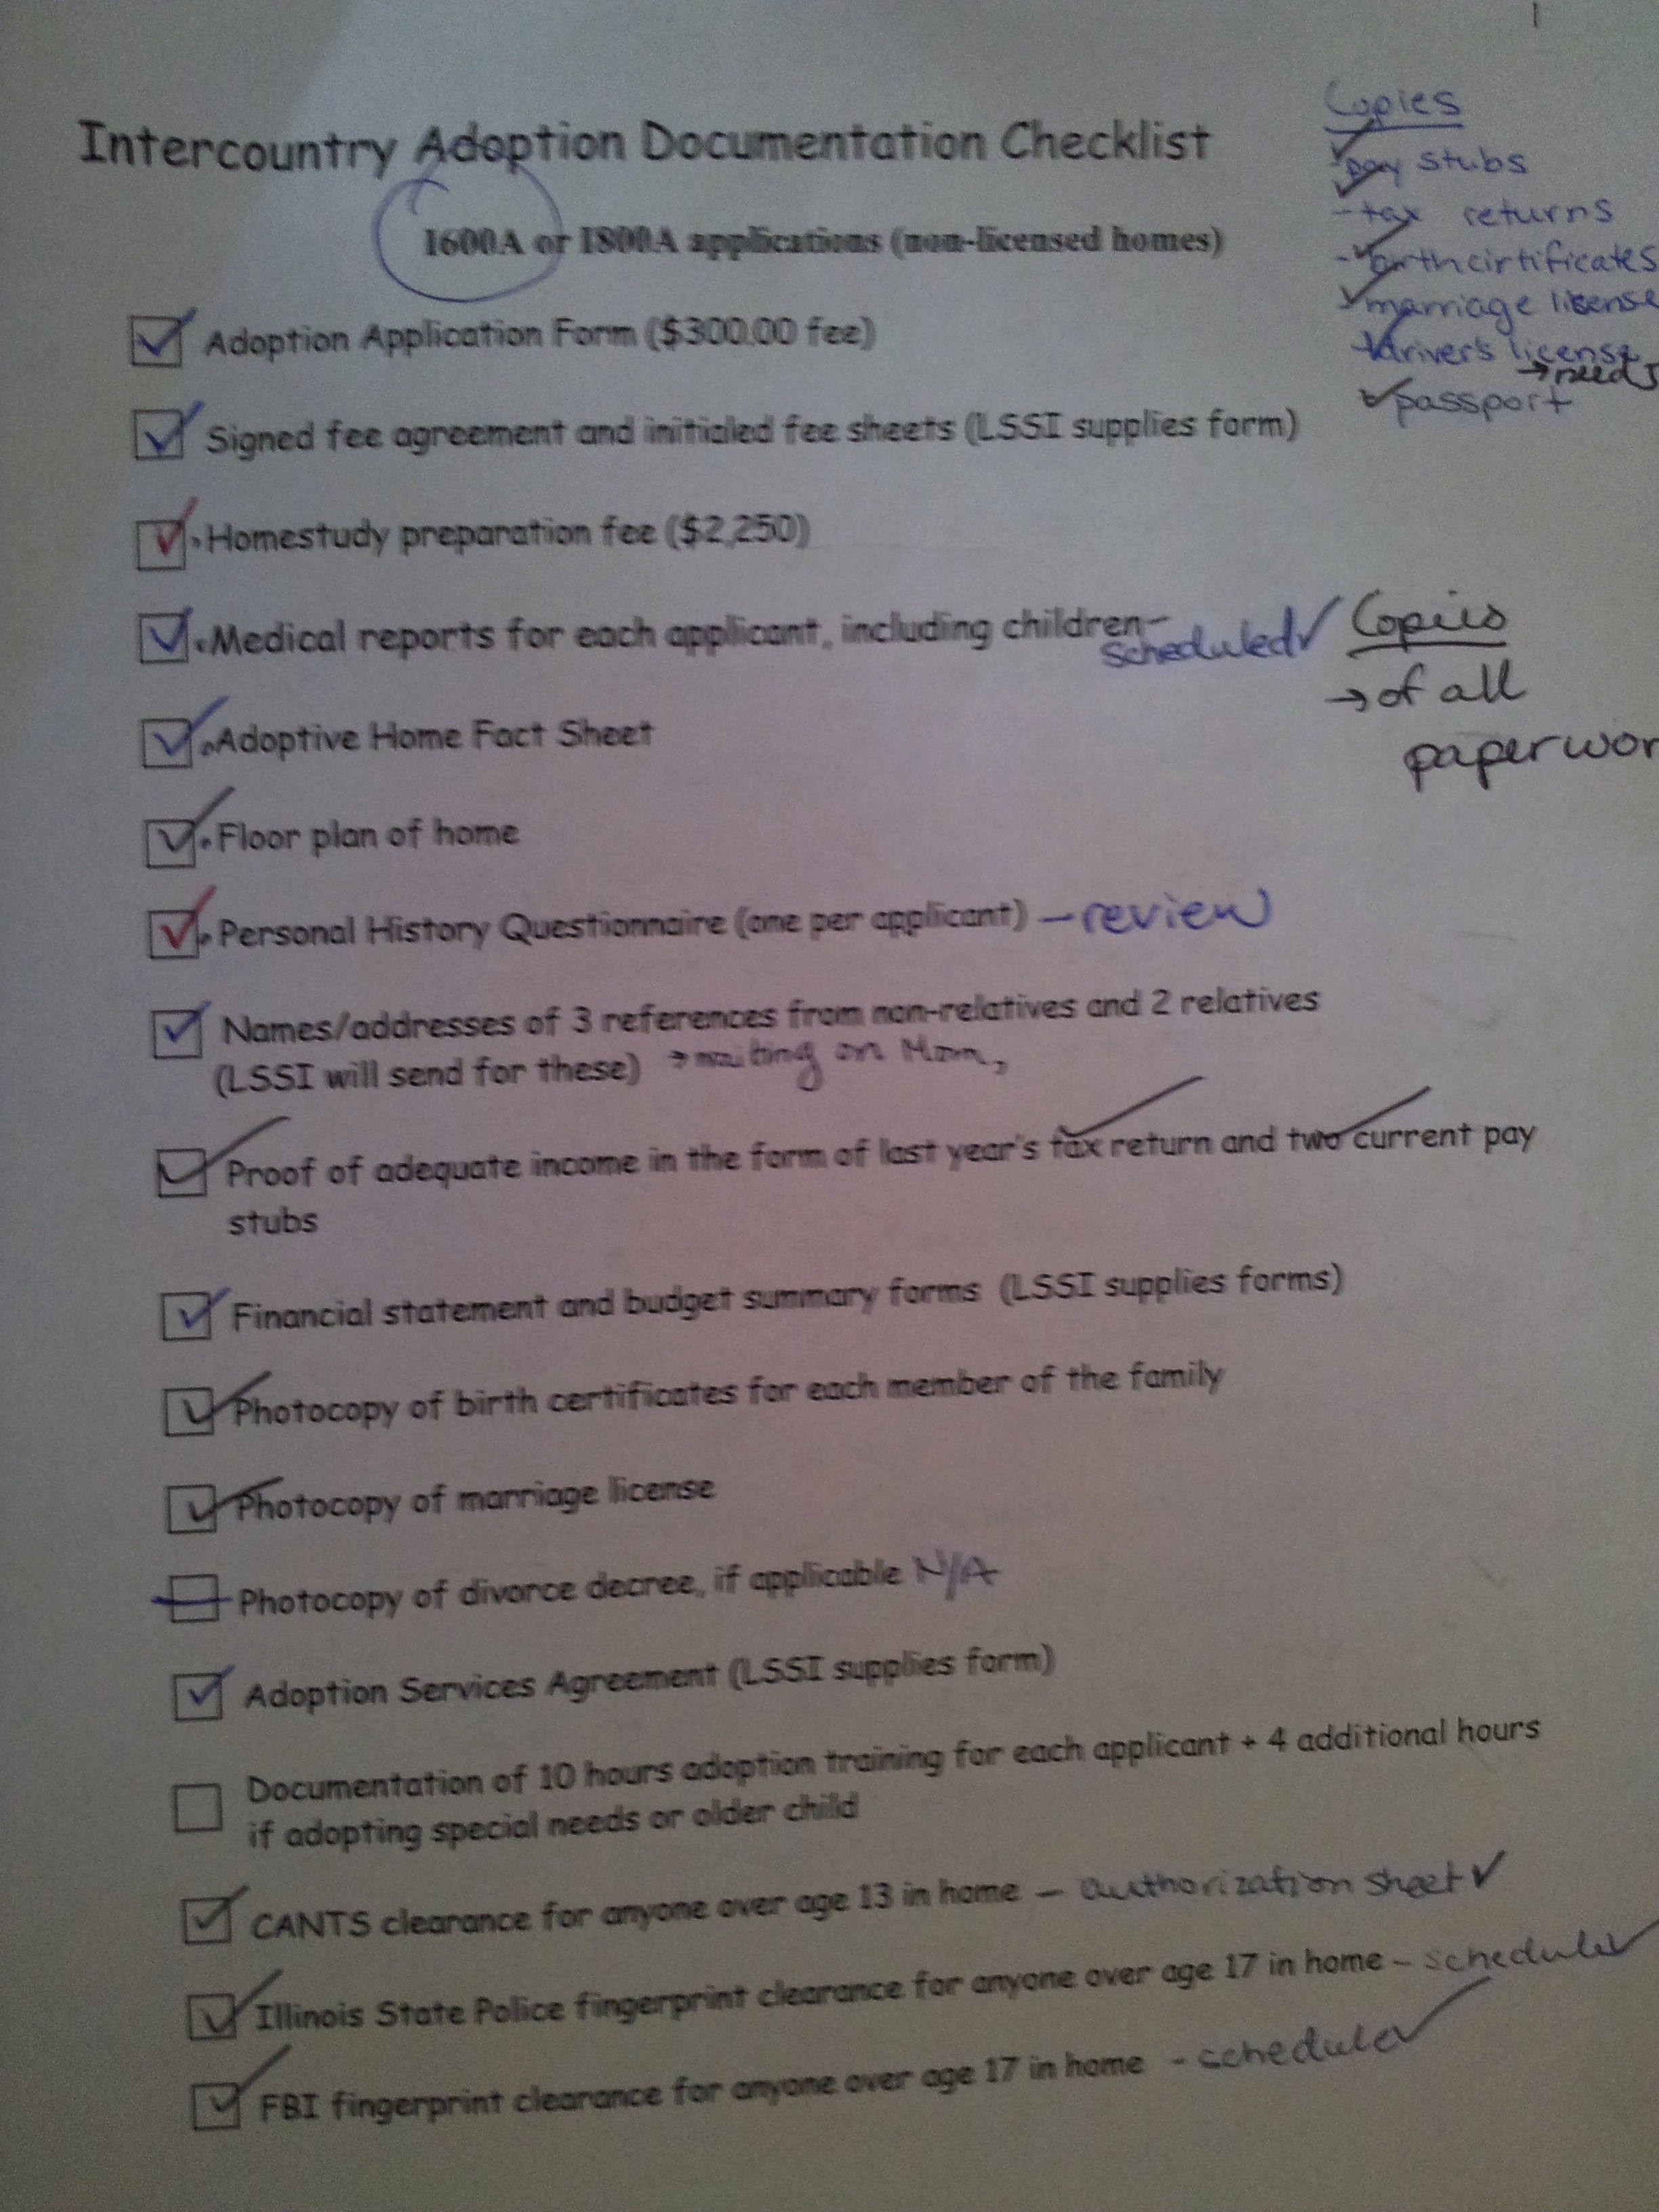 1
Intercountry Adoption Documentation Checklist
1600A or 1800A applications (non-licensed homes)
Copies
pay stubs
-tax returns
-birthcirtificates
marriage license
driver's license
→needs
passport
Adoption Application Form ($300.00 fee)
Signed fee agreement and initialed fee sheets (LSSI supplies form)
Homestudy preparation fee ($2,250)
Medical reports for each applicant, including children-
scheduled
Copies
→of all
paperwor
Adoptive Home Fact Sheet
Floor plan of home
Personal History Questionnaire (one per applicant) -review
Names/addresses of 3 references from non-relatives and 2 relatives
(LSSI will send for these) →waiting on Mom,
Proof of adequate income in the form of last year's tax return and two current pay
stubs
Financial statement and budget summary forms (LSSI supplies forms)
Photocopy of birth certificates for each member of the family
Photocopy of marriage license
Photocopy of divorce decree, if applicable N/A
Adoption Services Agreement (LSSI supplies form)
Documentation of 10 hours adoption training for each applicant + 4 additional hours
if adopting special needs or older child
CANTS clearance for anyone over age 13 in home - authorization sheet
Illinois State Police fingerprint clearance for anyone over age 17 in home - schedule
FBI fingerprint clearance for anyone over age 17 in home - schedule